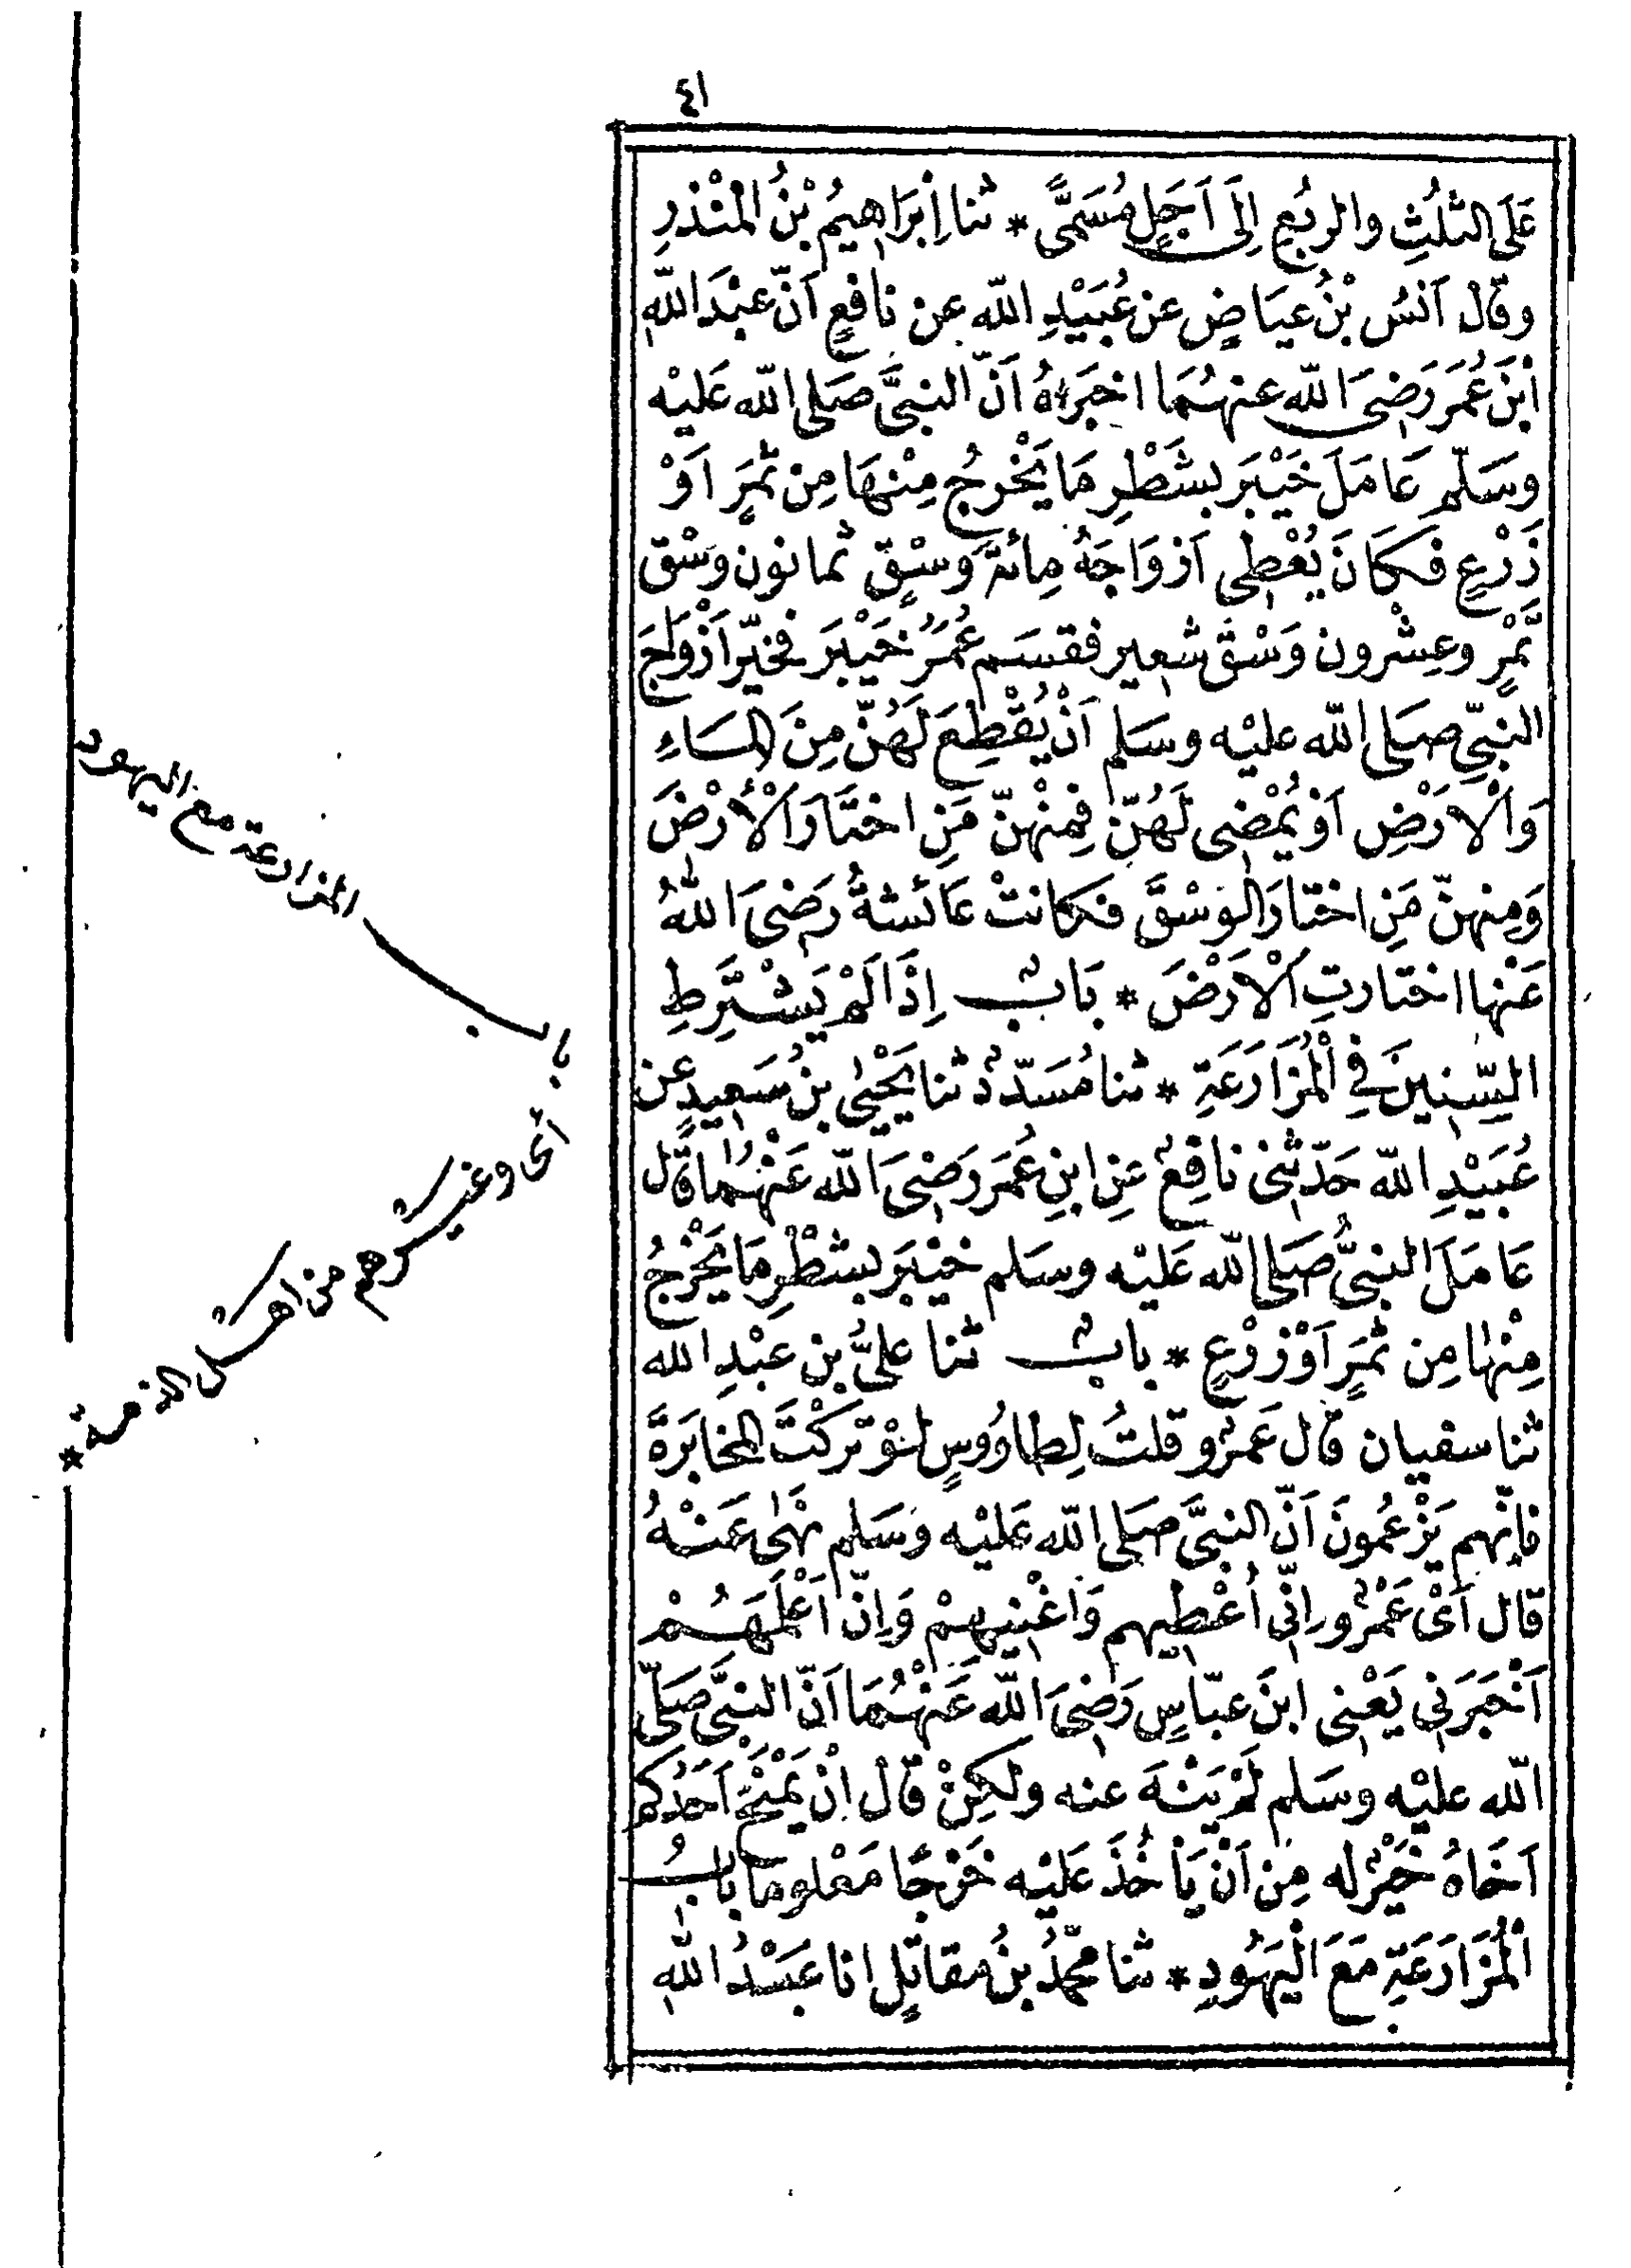 ٤١
عَلَى الثلُثِ والربُعِ اِلَى اَجَلٍ مُسَمًّى * ثنا اِبْرَاهِيمُ بْنُ المُنْذِرِ
وقال اَنَسُ بْنُ عِيَاضٍ عن عُبَيْدِ اللّه عن نافعٍ اَنّ عبْدَ اللّهِ
اْبنَ عُمَرَ رَضِىَ اللّه عنهُمَا اخبَرَهُ اَنّ النبىَّ صَلى اللّه عَليْه
وسَلّم عَامَلَ خَيْبَرَ بشَطْرِ مَا يَخْرجُ مِنْهَا مِن ثمَرٍ اَوْ
زَرْعٍ فَكَانَ يُعْطِى اَزوَاجَهُ مِائةَ وَسْقٍ ثمانون وَسْقَ
تَمْرٍ وعِشْرون وَسْقَ شعِير فقسَم عُمَرُ خَيْبَرَ فخيّرَ اَزْوَاجَ
النبىّ صَلى اللّه عليْه وسَلم اَنْ يُقْطِعَ لَهُنّ مِنَ المَاءِ
وَالْاَرْضِ اَوْ يُمْضِى لَهُنّ فمِنْهنّ مَنِ اختَارَ الْاَرْضَ
وَمِنهنّ مَنِ اختارَ الوَسْقَ فكانتْ عَائشةُ رَضِىَ اللّهُ
عَنْها اختارتِ الْاَرْضَ * بَابٌ اِذَا لَمْ يَشْتَرِطِ
السِّنِينَ فِى الْمُزَارَعَةِ * ثنا مُسَدّدٌ ثنا يَحْيٰى بنُ سَعِيدٍ عن
عُبَيْدِ اللّه حَدّثنِى نافِعٌ عَنِ ابنِ عُمَرَ رَضِىَ اللّه عَنْهُمَا قال
عَامَلَ النبىُّ صَلى اللّه عَليْه وسَلم خيْبَرَ بشَطْرِ مَا يَخْرجُ
مِنْهَا مِن ثمَرٍ اَوْ زرْعٍ * بابٌ ثنا علىُّ بن عبْدِ الله
ثنا سفيان قال عَمرٌو قلتُ لِطاوُوسٍ لَوْ تَرَكْتَ المخابَرَةَ
فاِنّهم يَزْعُمونَ اَنّ النبىَّ صَلى اللّه عَليْه وَسَلم نهٰى عَنْهُ
قال اَىْ عَمْرُو اِنّى اُعْطِيهم وَاغْنِيهِمْ وَاِنّ اَعْلَمَهُمْ
اَخْبَرَنِى يَعْنِى ابنَ عبّاسٍ رَضِىَ اللّه عَنْهُمَا اَنّ النبىَّ صَلّى
اللّه عليْه وسَلم لَمْ يَنْهَ عنه ولكِنْ قال اَنْ يَمْنَحَ اَحَدُكم
اَخَاهُ خَيْرٌ له مِن اَنْ يَأخُذَ عَليْه خَرْجًا مَعْلوما بابُ
الْمُزَارَعَةِ مَعَ الْيَهُودِ * ثنا محمّدُ بنُ مقاتِلٍ انا عَبْدُ اللّهِ
باب المزارعة مع اليهود
أى وغيرهم من اهل الذمة *